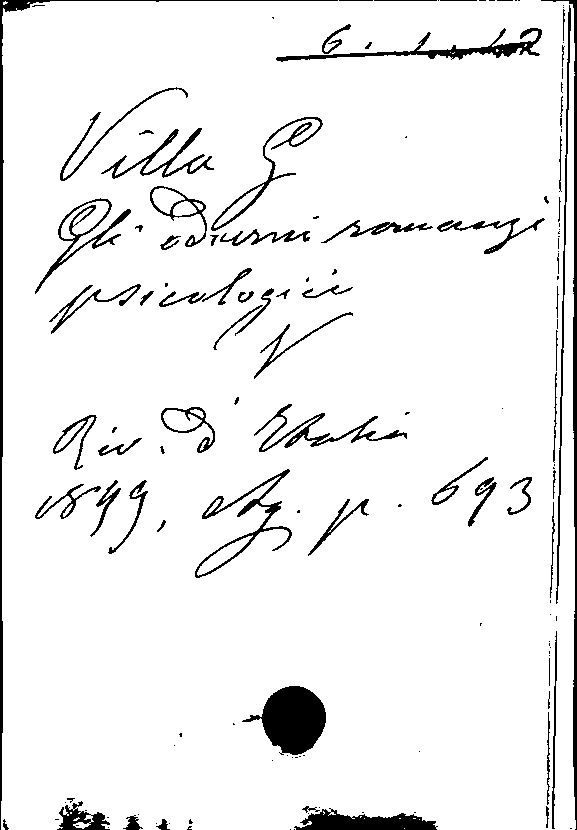 6. 1. 12
Villa G
Gli odierni romanzi
psicologici
V
Riv. d'Italia
1899, Ag. p. 693